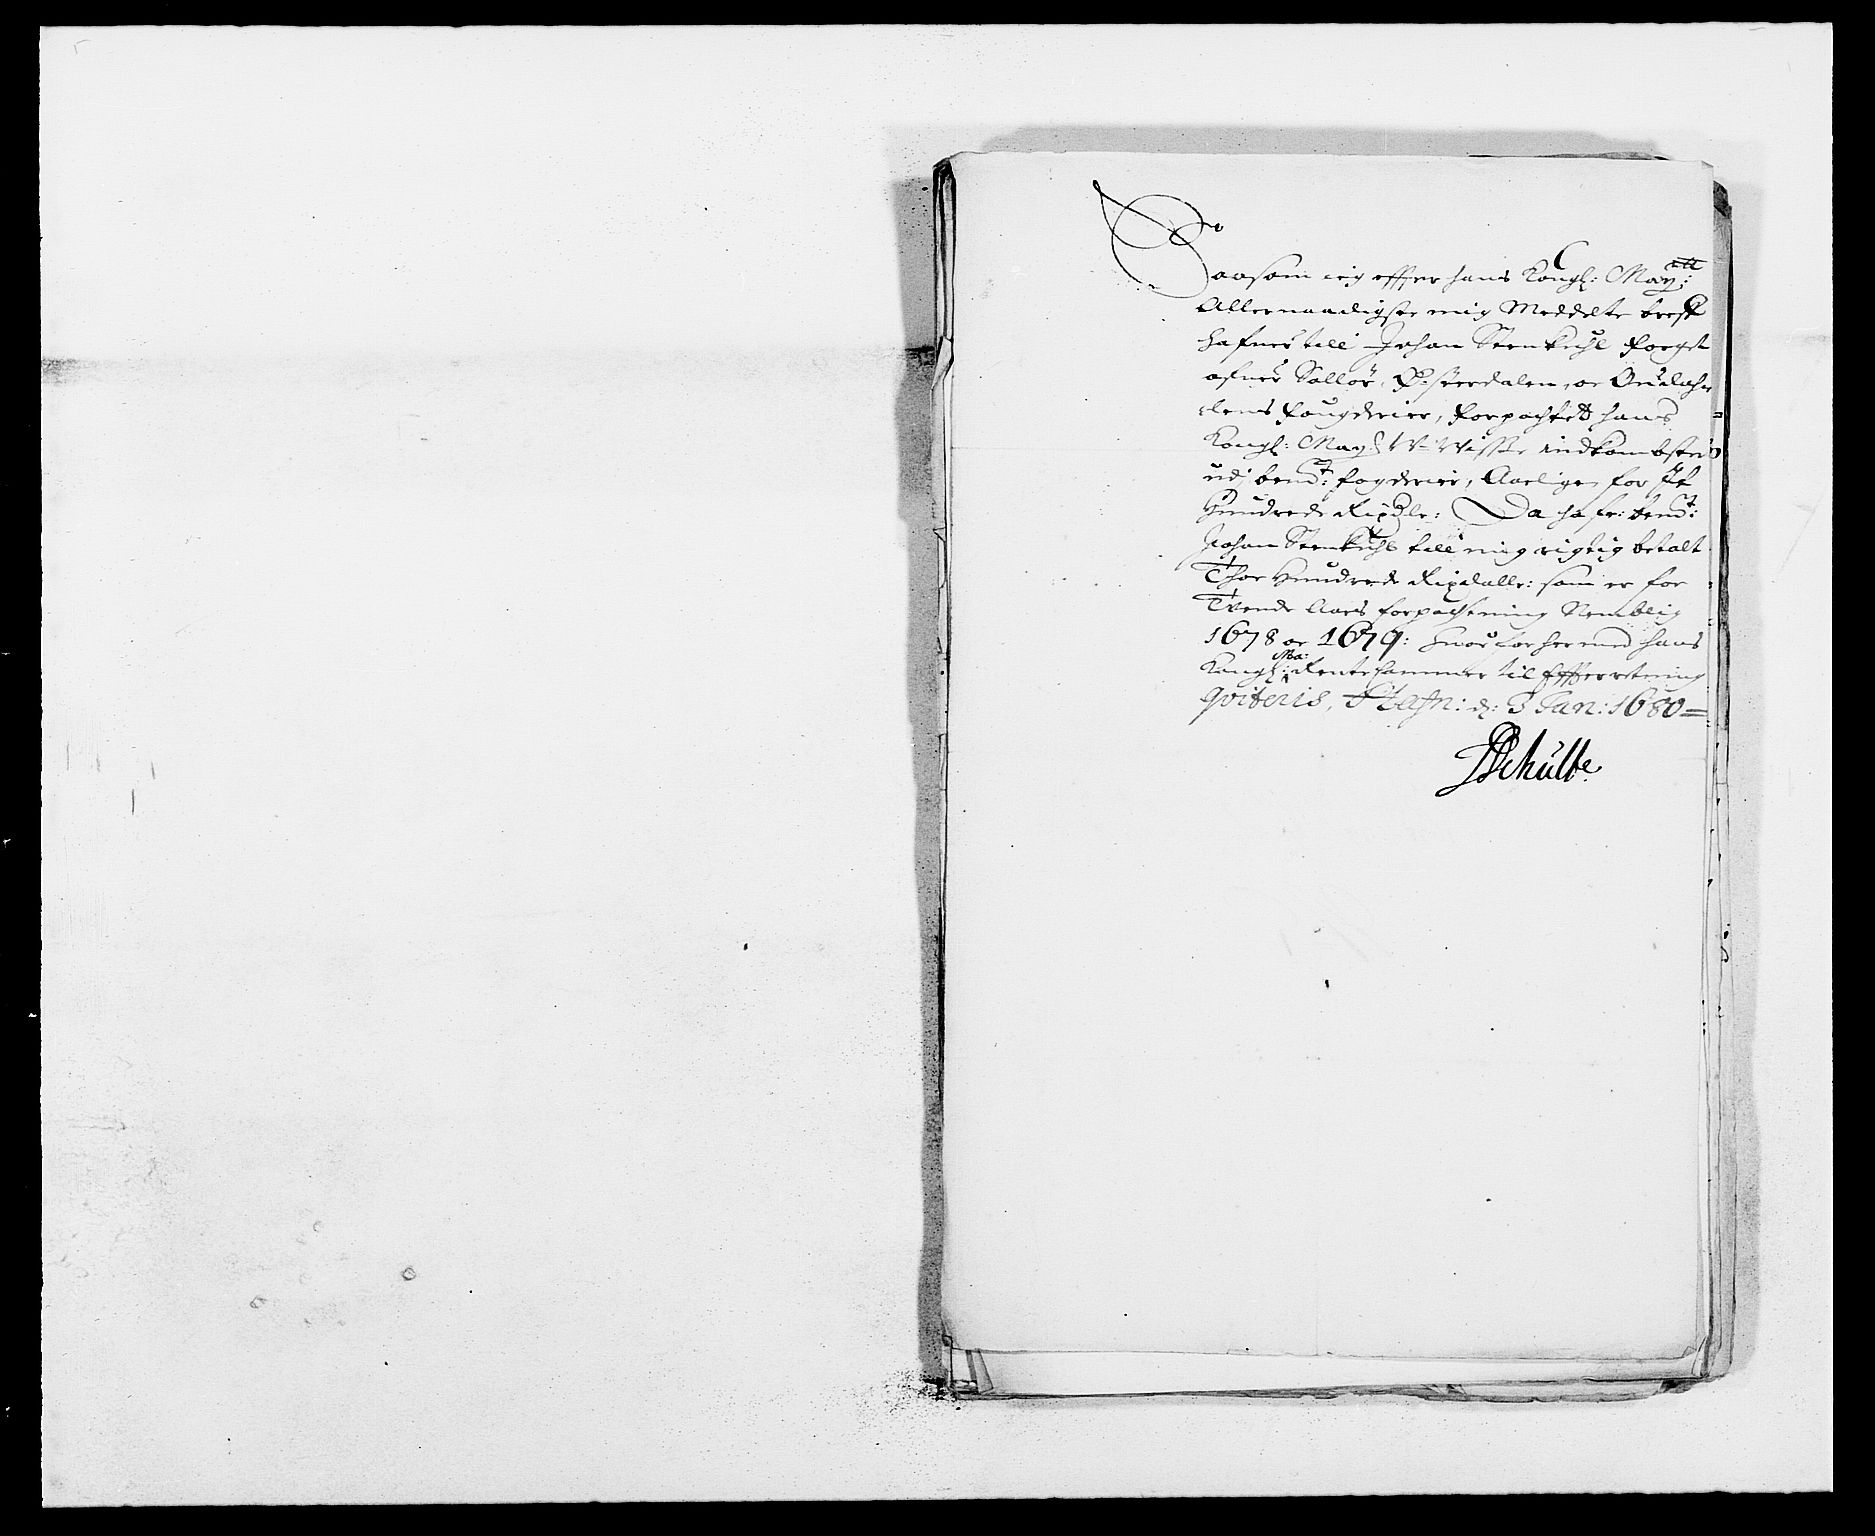 Saasom ieg effter hans Kongl: May:tt
Allernaadigste mig Meddelte breff
hafuer till Johan Stenkuhl Foeget
ofuer Sollør, Østerdalen, oc Oudahls
elens fougderier, forpachtet hans
Kongl: May: U-Visse indkombster
udj bemt: fogderier, Aarligen for it
Hundrede Rixdlr: Da hafr: bemt:
Johan Stenkuhl till mig rigtig betalt
Thoe Hundrede Rixdallr: som er for
Tvende Aars forpachtning Nemblig
1678 oc 1679: huorfor hermed hans
Kongl: Ma: Rentecammer til Effterretning
qviteris, Hafn: d: 3 Jan: 1680=
PSchulte